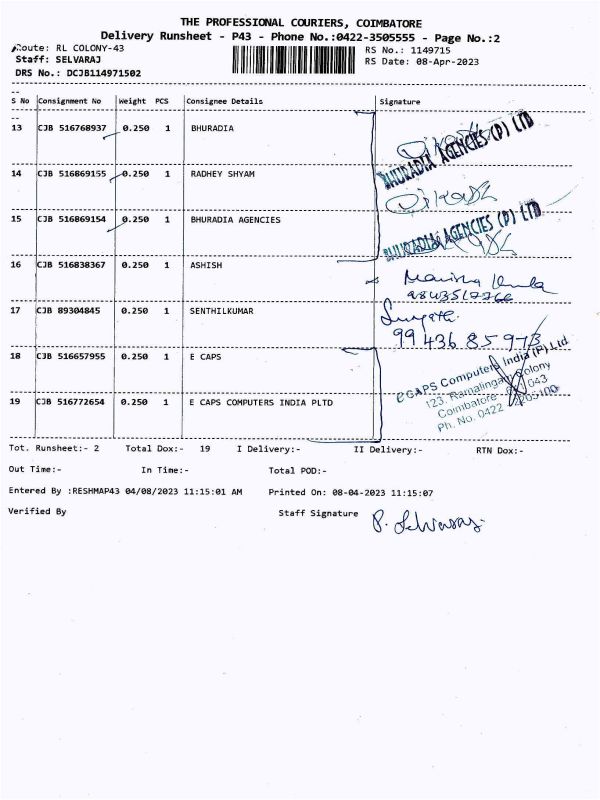 THE PROFESSIONAL COURIERS, COIMBATORE
Delivery Runsheet - P43 - Phone No.:0422-3505555 - Page No.:2
Route: RL COLONY-43 RS No.: 1149715
Staff: SELVARAJ RS Date: 08-Apr-2023
DRS No.: DCJB114971502
S No Consignment No Weight PCS Consignee Details Signature
13 CJB 516768937 0.250 1 BHURADIA
BHURADIA AGENCIES (P) LTD
14 CJB 516869155 0.250 1 RADHEY SHYAM
15 CJB 516869154 0.250 1 BHURADIA AGENCIES
BHURADIA AGENCIES (P) LTD
16 CJB 516838367 0.250 1 ASHISH
17 CJB 89304845 0.250 1 SENTHILKUMAR
99 436 85973
18 CJB 516657955 0.250 1 E CAPS
eCAPS Computers India (P) Ltd
123, Ramalingam Colony
Coimbatore 043
Ph. No. 0422
19 CJB 516772654 0.250 1 E CAPS COMPUTERS INDIA PLTD
Tot. Runsheet:- 2 Total Dox:- 19 I Delivery:- II Delivery:- RTN Dox:-
Out Time:- In Time:- Total POD:-
Entered By :RESHMAP43 04/08/2023 11:15:01 AM Printed On: 08-04-2023 11:15:07
Verified By Staff Signature P. Selvaraj